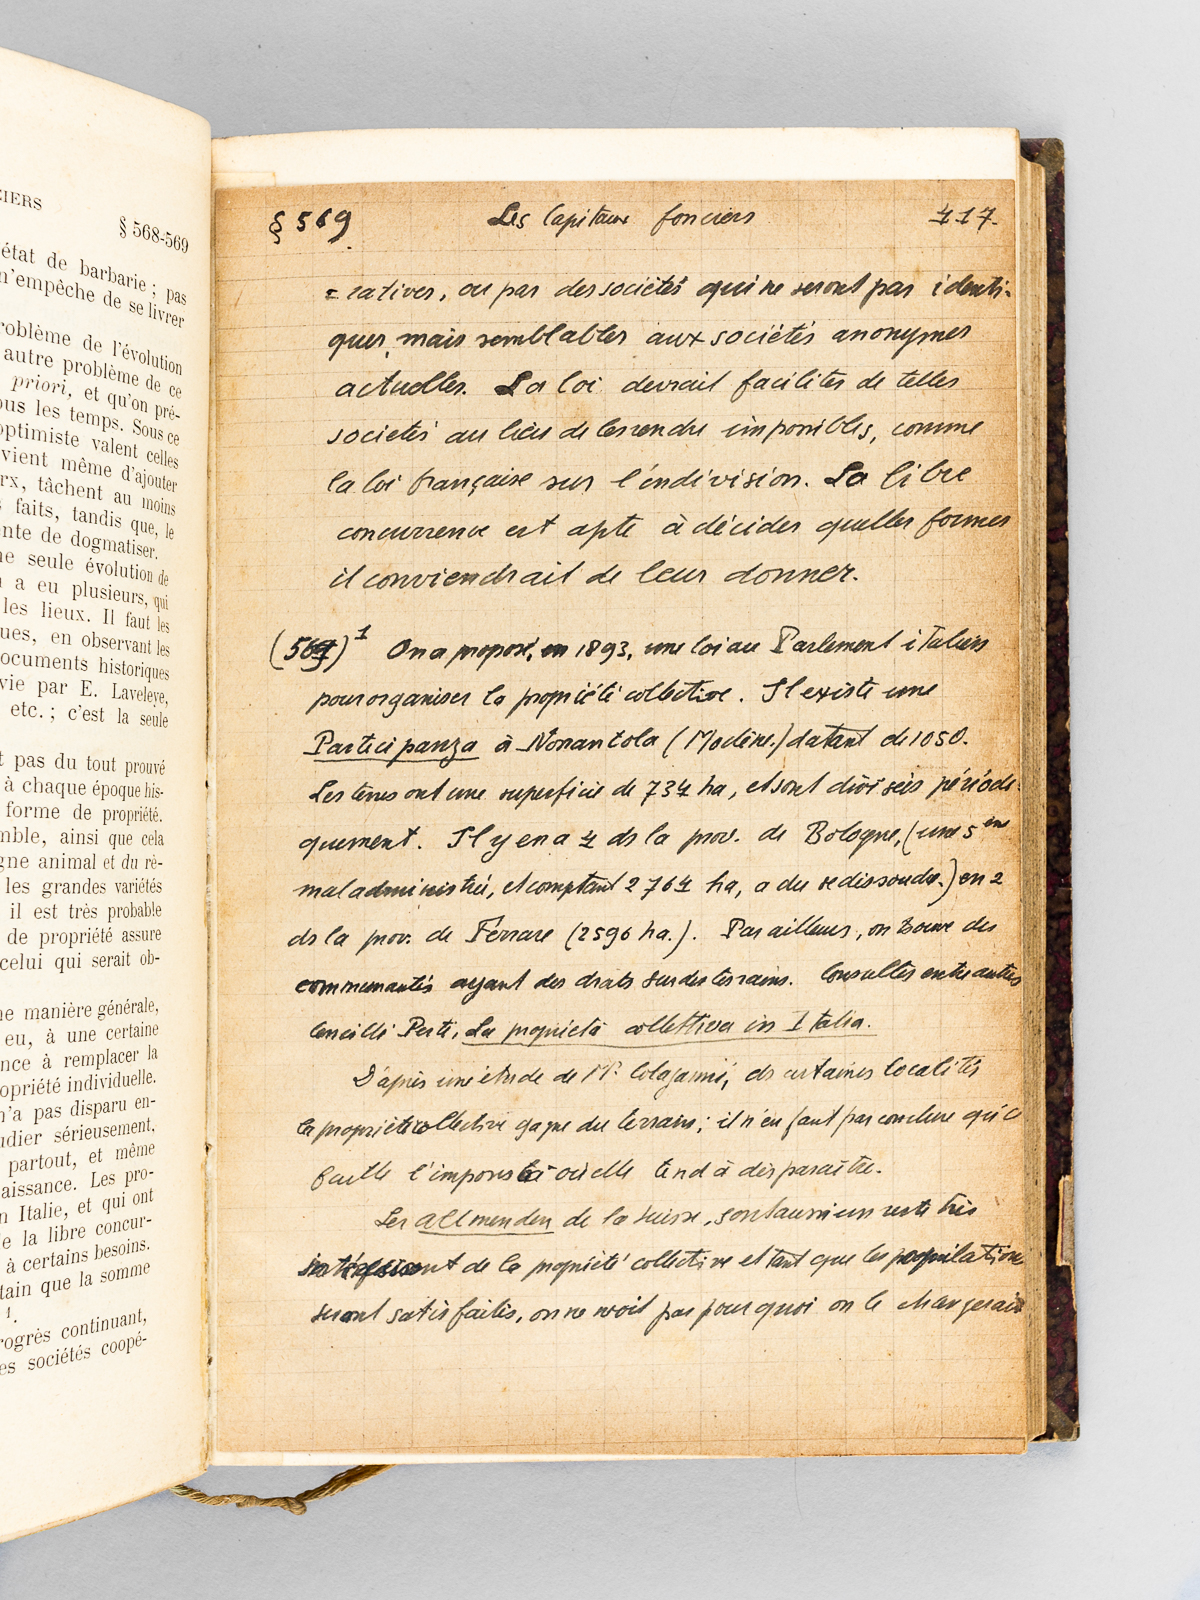 CIERS
§ 568-569
état de barbarie ; pas
n'empêche de se livrer
roblème de l'évolution
autre problème de ce
priori, et qu'on pré-
ous les temps. Sous ce
optimiste valent celles
vient même d'ajouter
rx, tâchent au moins
faits, tandis que, le
nte de dogmatiser.
ne seule évolution de
a eu plusieurs, qui
les lieux. Il faut les
ques, en observant les
ocuments historiques
vie par E. Laveleye,
etc. ; c'est la seule
t pas du tout prouvé
à chaque époque his-
forme de propriété.
mble, ainsi que cela
gne animal et du rè-
les grandes variétés
il est très probable
de propriété assure
celui qui serait ob-
ne manière générale,
eu, à une certaine
nce à remplacer la
opriété individuelle.
n'a pas disparu en-
udier sérieusement,
partout, et même
aissance. Les pro-
n Italie, et qui ont
e la libre concur-
à certains besoins.
tain que la somme
1.
rogrès continuant,
es sociétés coopé-
§ 569 Les Capitaux fonciers 417.
= ratives, ou par des sociétés qui ne seront pas identi-
ques, mais semblables aux sociétés anonymes
actuelles. La loi devrait faciliter de telles
sociétés au lieu de les rendre impossibles, comme
la loi française sur l'indivision. La libre
concurrence est apte à décider quelles formes
il conviendrait de leur donner.
(569)1 On a proposé, en 1893, une loi au Parlement italien
pour organiser la propriété collective. Il existe une
Partecipanza à Nonantola (Modène.) datant de 1050.
Les terres ont une superficie de 734 ha, et sont divisées périodi-
quement. Il y en a 4 ds la prov. de Bologne, (une 5ème
mal administrée, et comptant 2764 ha, a du se dissoudre.) en 2
ds la prov. de Ferrare (2596 ha.). Par ailleurs, on trouve des
communautés ayant des droits sur des terrains. Consulter entre autres
Cencelli Perti, La proprietà collettiva in Italia.
D'après une étude de Mr. Colajanni, ds certaines localités
la propriété collective gagne du terrain ; il n'en faut pas conclure qu'il
faille l'imposer là où elle tend à disparaître.
Les allmenden de la Suisse, sont aussi un reste très
intéressant de la propriété collective et tant que les populations
seront satisfaites, on ne voit pas pourquoi on le changerait